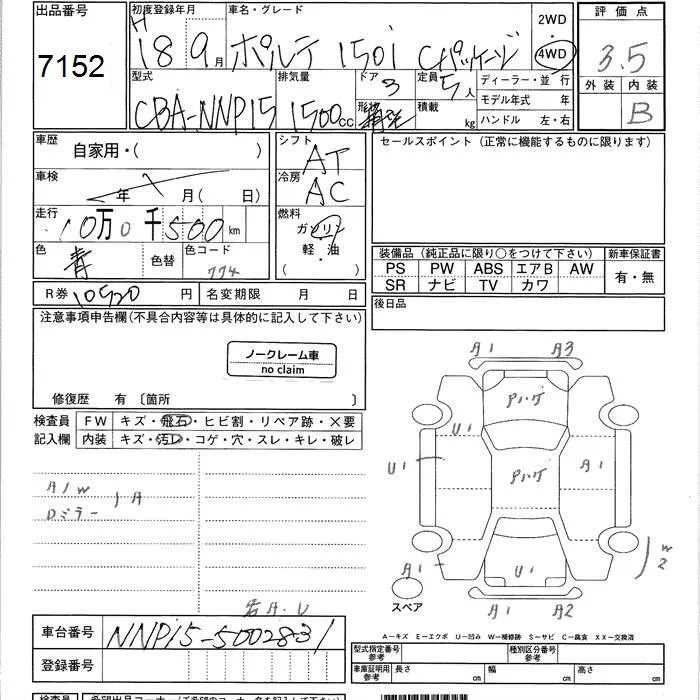 出品番号 初度登録年月 車名・グレード 2WD 評価点
7152 H 18 9月 ポルテ 150i Cパッケージ 4WD 3.5
型式 排気量 ドア 定員 ディーラー・並行 外装 内装
CBA-NNP15 1500cc 3 5人 モデル年式 年 B
形状 積載 kg ハンドル 左・右
車歴 自家用・( ) シフト AT セールスポイント (正常に機能するものに限ります)
車検 年 月(日) 冷房 AC
走行 10万0千500km 燃料 ガソリン
色 青 色替 色コード 774 軽・油 ( ・ )
装備品 (純正品に限り○をつけて下さい) 新車保証書
PS PW ABS エアB AW 有・無
SR ナビ TV カワ
R券 10520円 名変期限 月 日 後日品
注意事項申告欄(不具合内容等は具体的に記入して下さい)
ノークレーム車
no claim
修復歴 有 〔箇所 〕
検査員 FW キズ・飛石・ヒビ割・リペア跡・×要
記入欄 内装 キズ・汚レ・コゲ・穴・スレ・キレ・破レ
A1 A3
U1
U1 A1
A/W
Dミラー A
A1 U1 W2
スペア A1 A2
若A.U
車台番号 NNP15-5002831
A-キズ E-エクボ U-凹み W-補修跡 S-サビ C-腐食 XX-交換済
登録番号 型式指定番号 参考 種別区分番号 参考
車庫証明用 参考 長さ cm 幅 cm 高さ cm